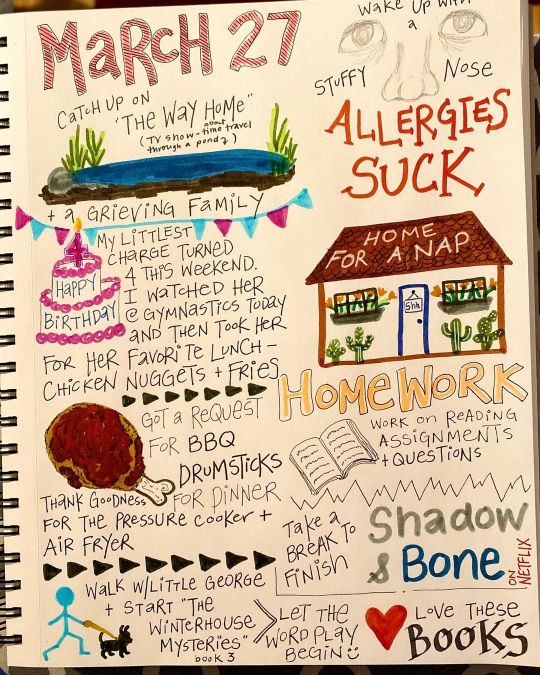 MARCH 27
WAKE UP WITH
a
STUFFY NOSE
ALLERGIES
SUCK
CATCH UP ON
"THE WAY HOME"
(TV SHOW - about time travel
through a pond?)
+ a GRIEVING FAMILY
4
HAPPY
BIRTHDAY
MY LITTLEST
CHARGE TURNED
4 THIS WEEKEND.
I WATCHED HER
@ GYMNASTICS TODAY
AND THEN TOOK HER
FOR HER FAVORITE LUNCH -
CHICKEN NUGGETS + FRIES
HOME
FOR A NAP
Shh
HOMEWORK
WORK ON READING
ASSIGNMENTS
+ QUESTIONS
GOT A REQUEST
FOR BBQ
DRUMSTICKS
FOR DINNER
THANK GOODNESS
FOR THE PRESSURE COOKER +
AIR FRYER
Take a
BREAK TO
FINISH
Shadow
& Bone
ON NETFLIX
WALK W/LITTLE GEORGE
+ START "THE
WINTERHOUSE
MYSTERIES"
book 3
LET THE
WORD PLAY
BEGIN
LOVE THESE
BOOKS